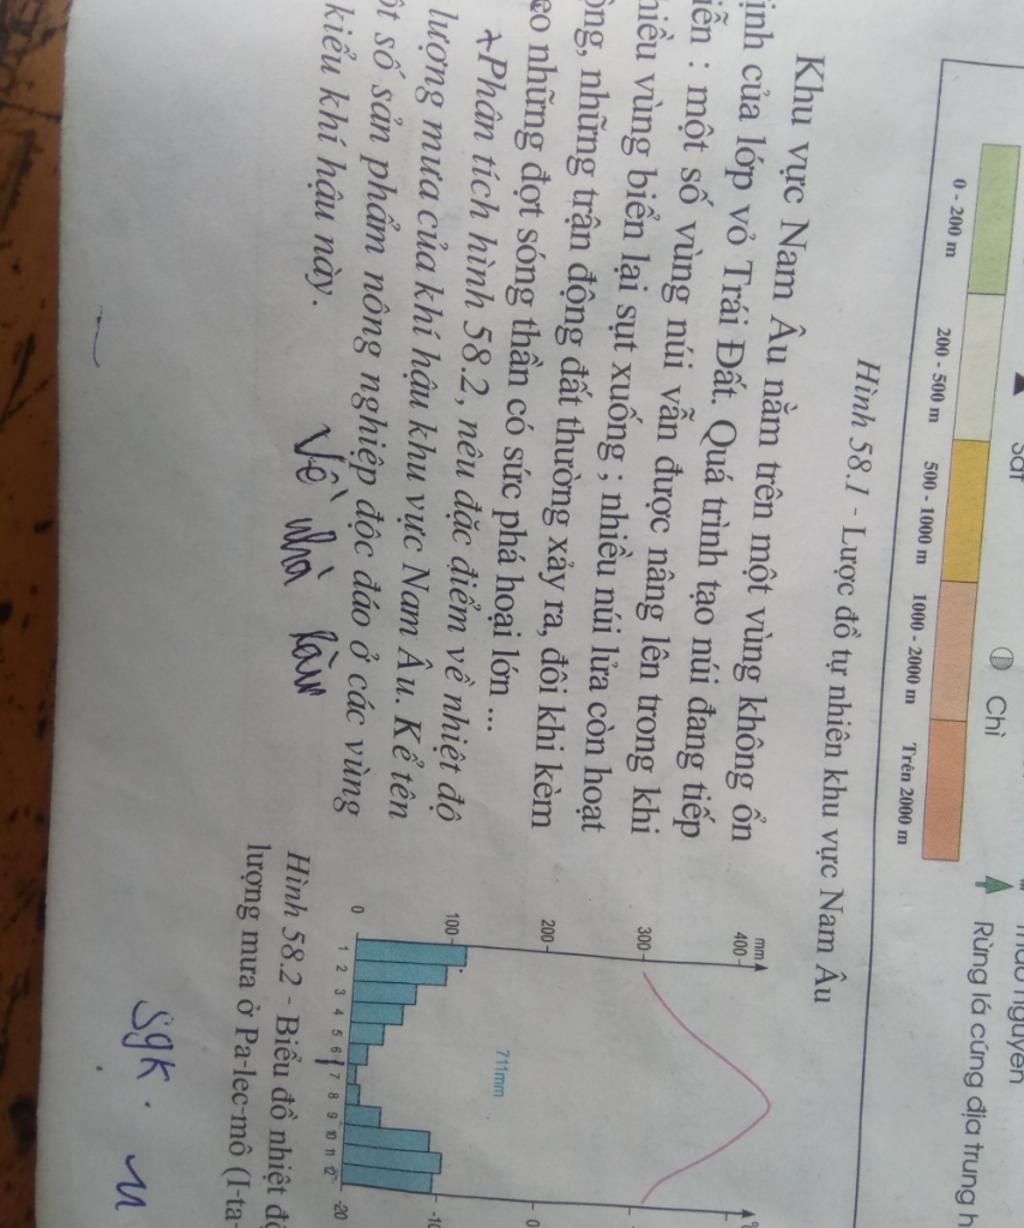 Sắt
Chì
Rừng lá cứng địa trung h
0 - 200 m
200 - 500 m
500 - 1000 m
1000 - 2000 m
Trên 2000 m
Hình 58.1 - Lược đồ tự nhiên khu vực Nam Âu
Khu vực Nam Âu nằm trên một vùng không ổn
ịnh của lớp vỏ Trái Đất. Quá trình tạo núi đang tiếp
iễn : một số vùng núi vẫn được nâng lên trong khi
hiều vùng biển lại sụt xuống ; nhiều núi lửa còn hoạt
ộng, những trận động đất thường xảy ra, đôi khi kèm
eo những đợt sóng thần có sức phá hoại lớn ...
Phân tích hình 58.2, nêu đặc điểm về nhiệt độ
lượng mưa của khí hậu khu vực Nam Âu. Kể tên
ột số sản phẩm nông nghiệp độc đáo ở các vùng
kiểu khí hậu này.
Về nhà làm
mm
400
300
200
100
0
711mm
0
-10
-20
1 2 3 4 5 6 7 8 9 10 11 12
Hình 58.2 - Biểu đồ nhiệt độ
lượng mưa ở Pa-lec-mô (I-ta-
sgk.